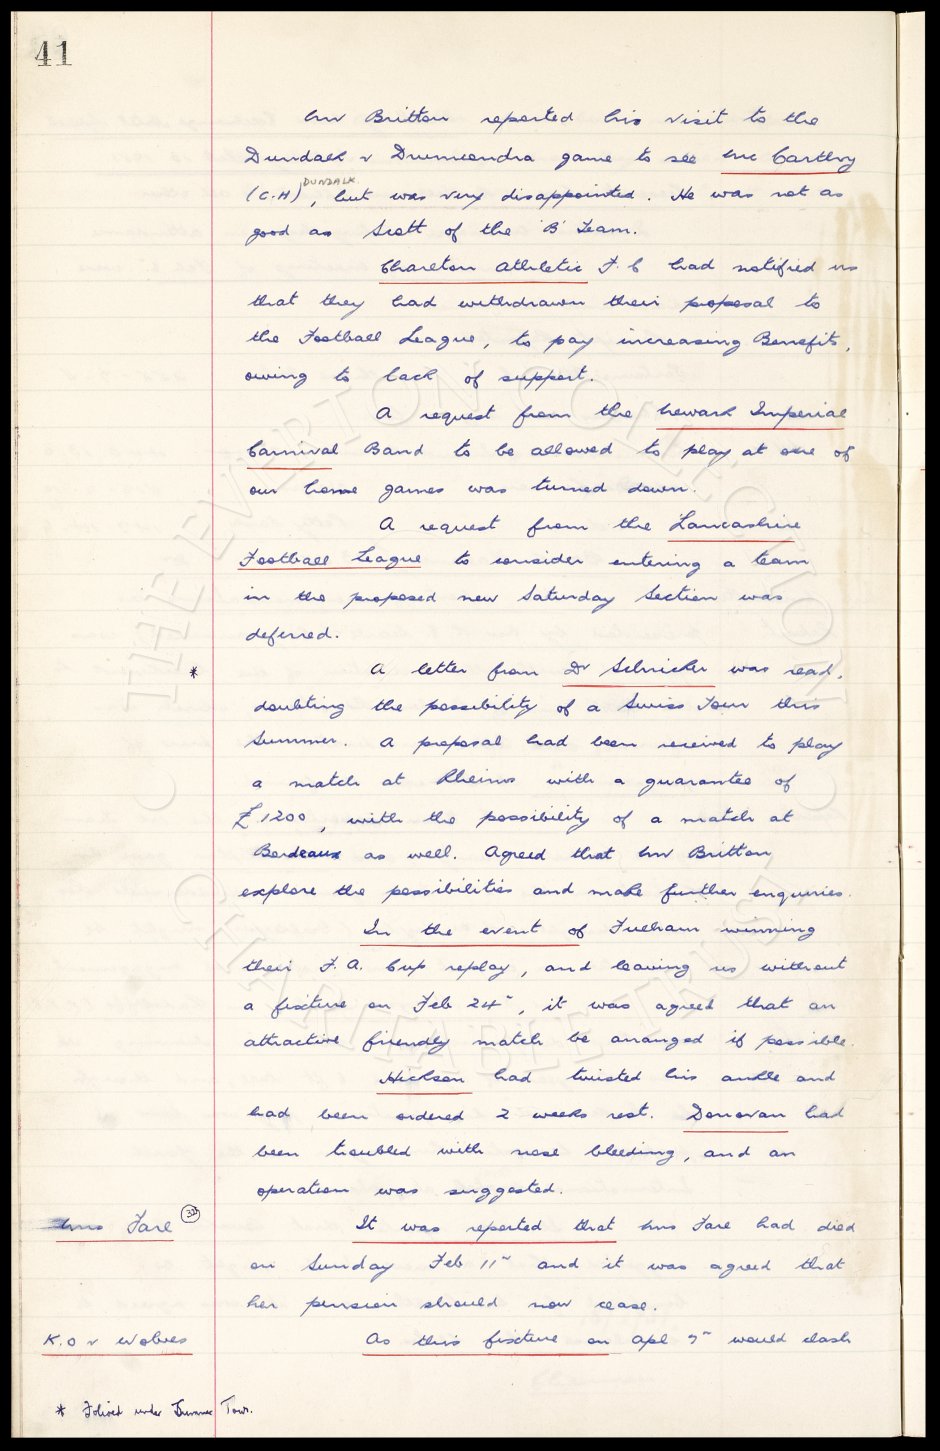 41
Mr Britton reported his visit to the
Dundalk v Drumcondra game to see Mc Carthy
(C.H) DUNDALK, but was very disappointed. He was not as
good as Scott of the 'B' Team.
Charlton Athletic F.C had notified us
that they had withdrawn their proposal to
the Football League, to pay increasing Benefits,
owing to lack of support.
A request from the Newark Imperial
Carnival Band to be allowed to play at one of
our home games was turned down.
A request from the Lancashire
Football League to consider entering a team
in the proposed new Saturday Section was
deferred.
* A letter from Dr Schricker was read,
doubting the possibility of a Swiss Tour this
Summer. A proposal had been received to play
a match at Rheims with a guarantee of
£1200, with the possibility of a match at
Bordeaux as well. Agreed that Mr Britton
explore the possibilities and make further enquiries.
In the event of Fulham winning
their F.A. Cup replay, and leaving us without
a fixture on Feb 24", it was agreed that an
attractive friendly match be arranged if possible.
Hickson had twisted his ankle and
had been ordered 2 weeks rest. Donovan had
been troubled with nose bleeding, and an
operation was suggested.
Mrs Fare It was reported that Mrs Fare had died
on Sunday Feb 11" and it was agreed that
her pension should now cease.
K.O v Wolves As this fixture on Apl 7" would clash
* under Summer Tour.
THE EVERTON COLLECTION
CHARITABLE TRUST